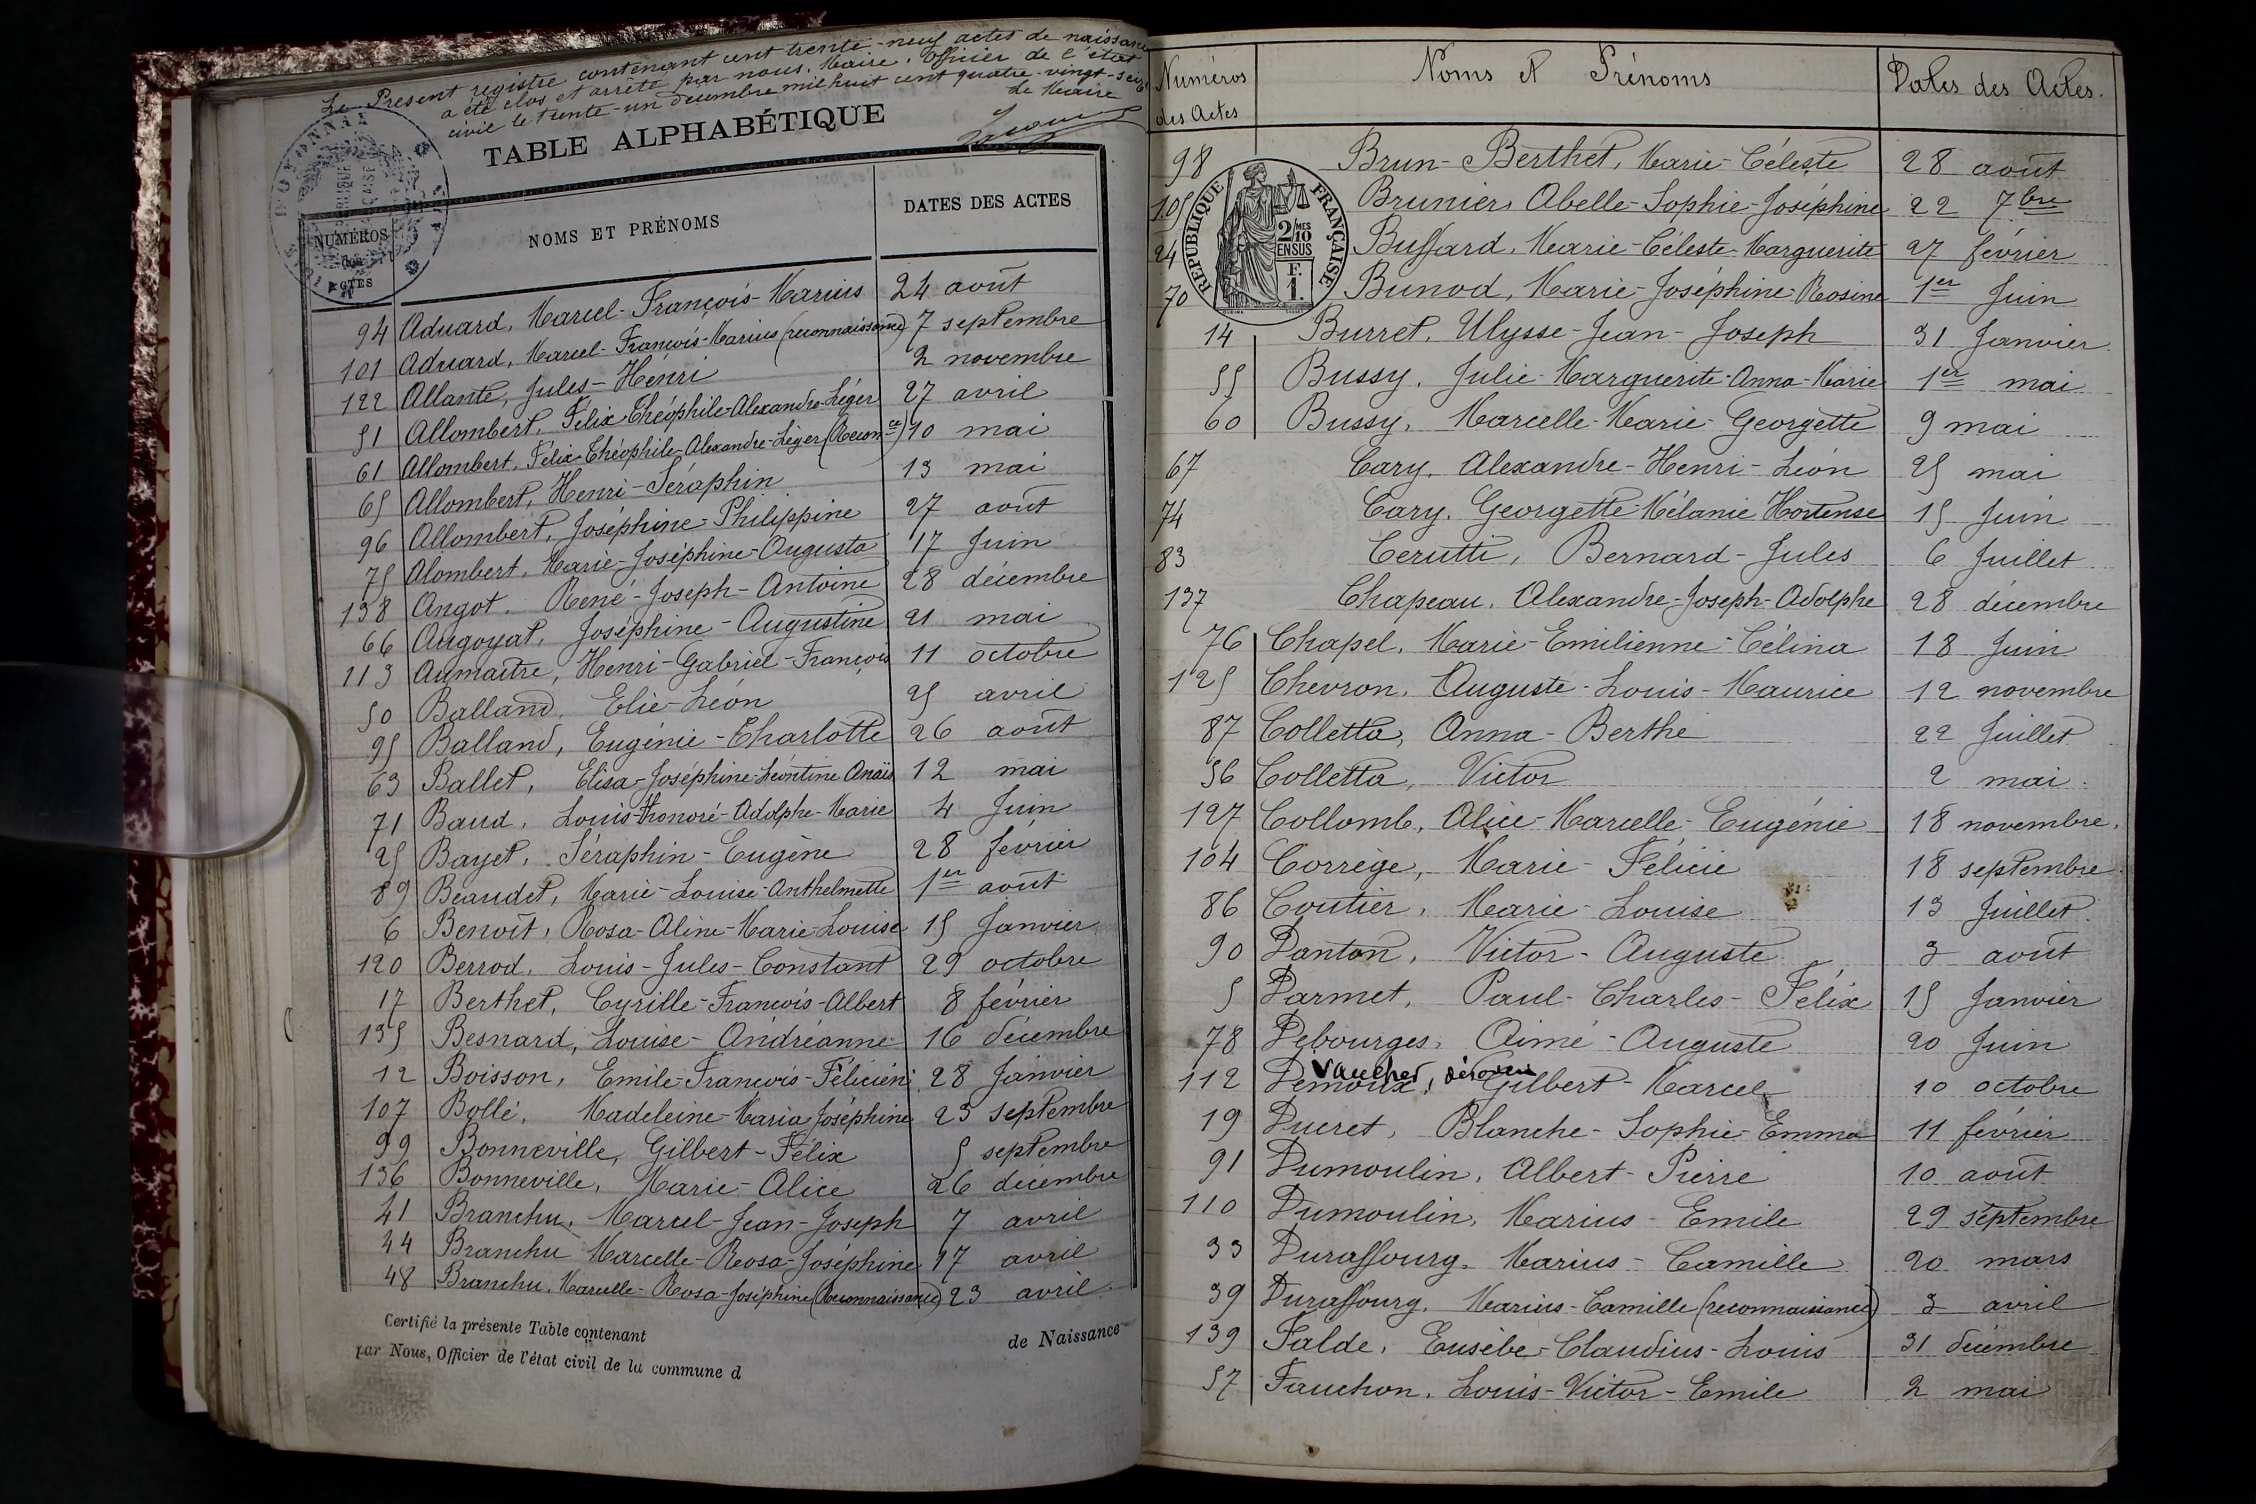 Le Présent registre contenant cent trente-neuf actes de naissance
a été clos et arrêté par nous, Maire, Officier de l'état
civil le trente-un décembre mil huit cent quatre-vingt-seize
Le Maire
TABLE ALPHABÉTIQUE
NUMÉROS des ACTES NOMS ET PRÉNOMS DATES DES ACTES
94 Aduard, Marcel-François-Marius 24 août
101 Aduard, Marcel-François-Marius (reconnaissance) 7 septembre
122 Allante, Jules-Henri 2 novembre
51 Allombert, Félix-Théophile-Alexandre-Léger 27 avril
61 Allombert, Félix-Théophile-Alexandre-Léger (Reconce) 10 mai
65 Allombert, Henri-Séraphin 13 mai
96 Allombert, Joséphine-Philippine 27 août
75 Alombert, Marie-Joséphine-Augusta 17 Juin
138 Angot, René-Joseph-Antoine 28 décembre
66 Augoyat, Joséphine-Augustine 21 mai
113 Aumaître, Henri-Gabriel-François 11 octobre
50 Balland, Elie-Léon 25 avril
95 Balland, Eugénie-Charlotte 26 août
63 Ballet, Elisa-Joséphine-Léontine Anaïs 12 mai
71 Baud, Louis-Honoré-Adolphe-Marie 4 Juin
25 Bayet, Séraphin-Eugène 28 février
89 Beaudet, Marie-Louise-Anthelmette 1er août
6 Benoît, Rosa-Aline-Marie-Louise 15 Janvier
120 Berrod, Louis-Jules-Constant 29 octobre
17 Berthet, Cyrille-François-Albert 8 février
135 Besnard, Louise-Andréanne 16 décembre
12 Boisson, Emile-François-Félicien 28 Janvier
107 Bollé, Madeleine-Maria Joséphine 23 septembre
99 Bonneville, Gilbert-Félix 5 septembre
136 Bonneville, Marie-Alice 26 décembre
41 Branchu, Marcel-Jean-Joseph 7 avril
44 Branchu Marcelle-Rosa-Joséphine 17 avril
48 Branchu, Marcelle-Rosa-Joséphine (Reconnaissance) 23 avril
Certifié la présente Table contenant de Naissance
par Nous, Officier de l'état civil de la commune d
Numéros des Actes Noms et Prénoms Dates des Actes.
RÉPUBLIQUE FRANÇAISE
2/10 MES
EN SUS
F. 1.
98 Brun-Berthet, Marie-Céleste 28 août
105 Brunier, Abelle-Sophie-Joséphine 22 7bre
24 Buffard, Marie-Céleste-Marguerite 27 février
70 Bunod, Marie-Joséphine-Rosine 1er Juin
14 Burret, Ulysse-Jean-Joseph 31 Janvier
55 Bussy, Julie-Marguerite-Anna-Marie 1er mai
60 Bussy, Marcelle-Marie-Georgette 9 mai
67 Cary, Alexandre-Henri-Léon 25 mai
74 Cary, Georgette Mélanie Hortense 15 Juin
83 Cerutti, Bernard-Jules 6 Juillet
137 Chapeau, Alexandre-Joseph-Adolphe 28 décembre
76 Chapel, Marie-Emilienne-Célina 18 Juin
125 Chevron, Auguste-Louis-Maurice 12 novembre
87 Colletta, Anna-Berthe 22 Juillet
56 Colletta, Victor 2 mai
127 Collomb, Alice-Marcelle-Eugénie 18 novembre
104 Corrège, Marie-Félicie 18 septembre
86 Coutier, Marie-Louise 13 Juillet
90 Danton, Victor-Auguste 3 août
5 Darmet, Paul-Charles-Félix 15 Janvier
78 Debourges, Aimé-Auguste 20 Juin
Vaucher,
112 Demoux, Gilbert-Marcel 10 octobre
19 Ducret, Blanche-Sophie-Emma 11 février
91 Dumoulin, Albert-Pierre 10 août
110 Dumoulin, Marius-Emile 29 septembre
33 Duraffourg, Marius-Camille 20 mars
39 Duraffourg, Marius-Camille (reconnaissance) 3 avril
139 Falde, Eusèbe-Claudius-Louis 31 décembre
57 Fauchon, Louis-Victor-Emile 2 mai